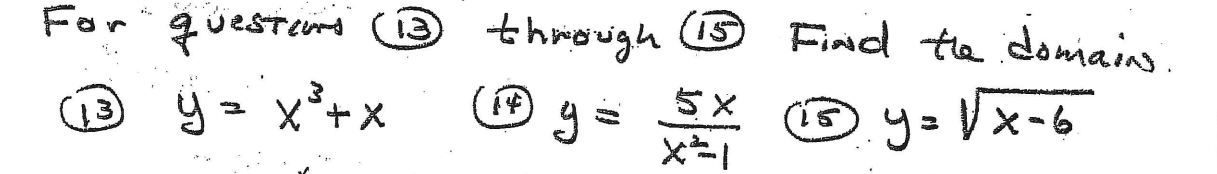 For questions (13) through (15) Find the domain.
(13) y = x³+x (14) y = 5x/x²-1 (15) y = √x-6